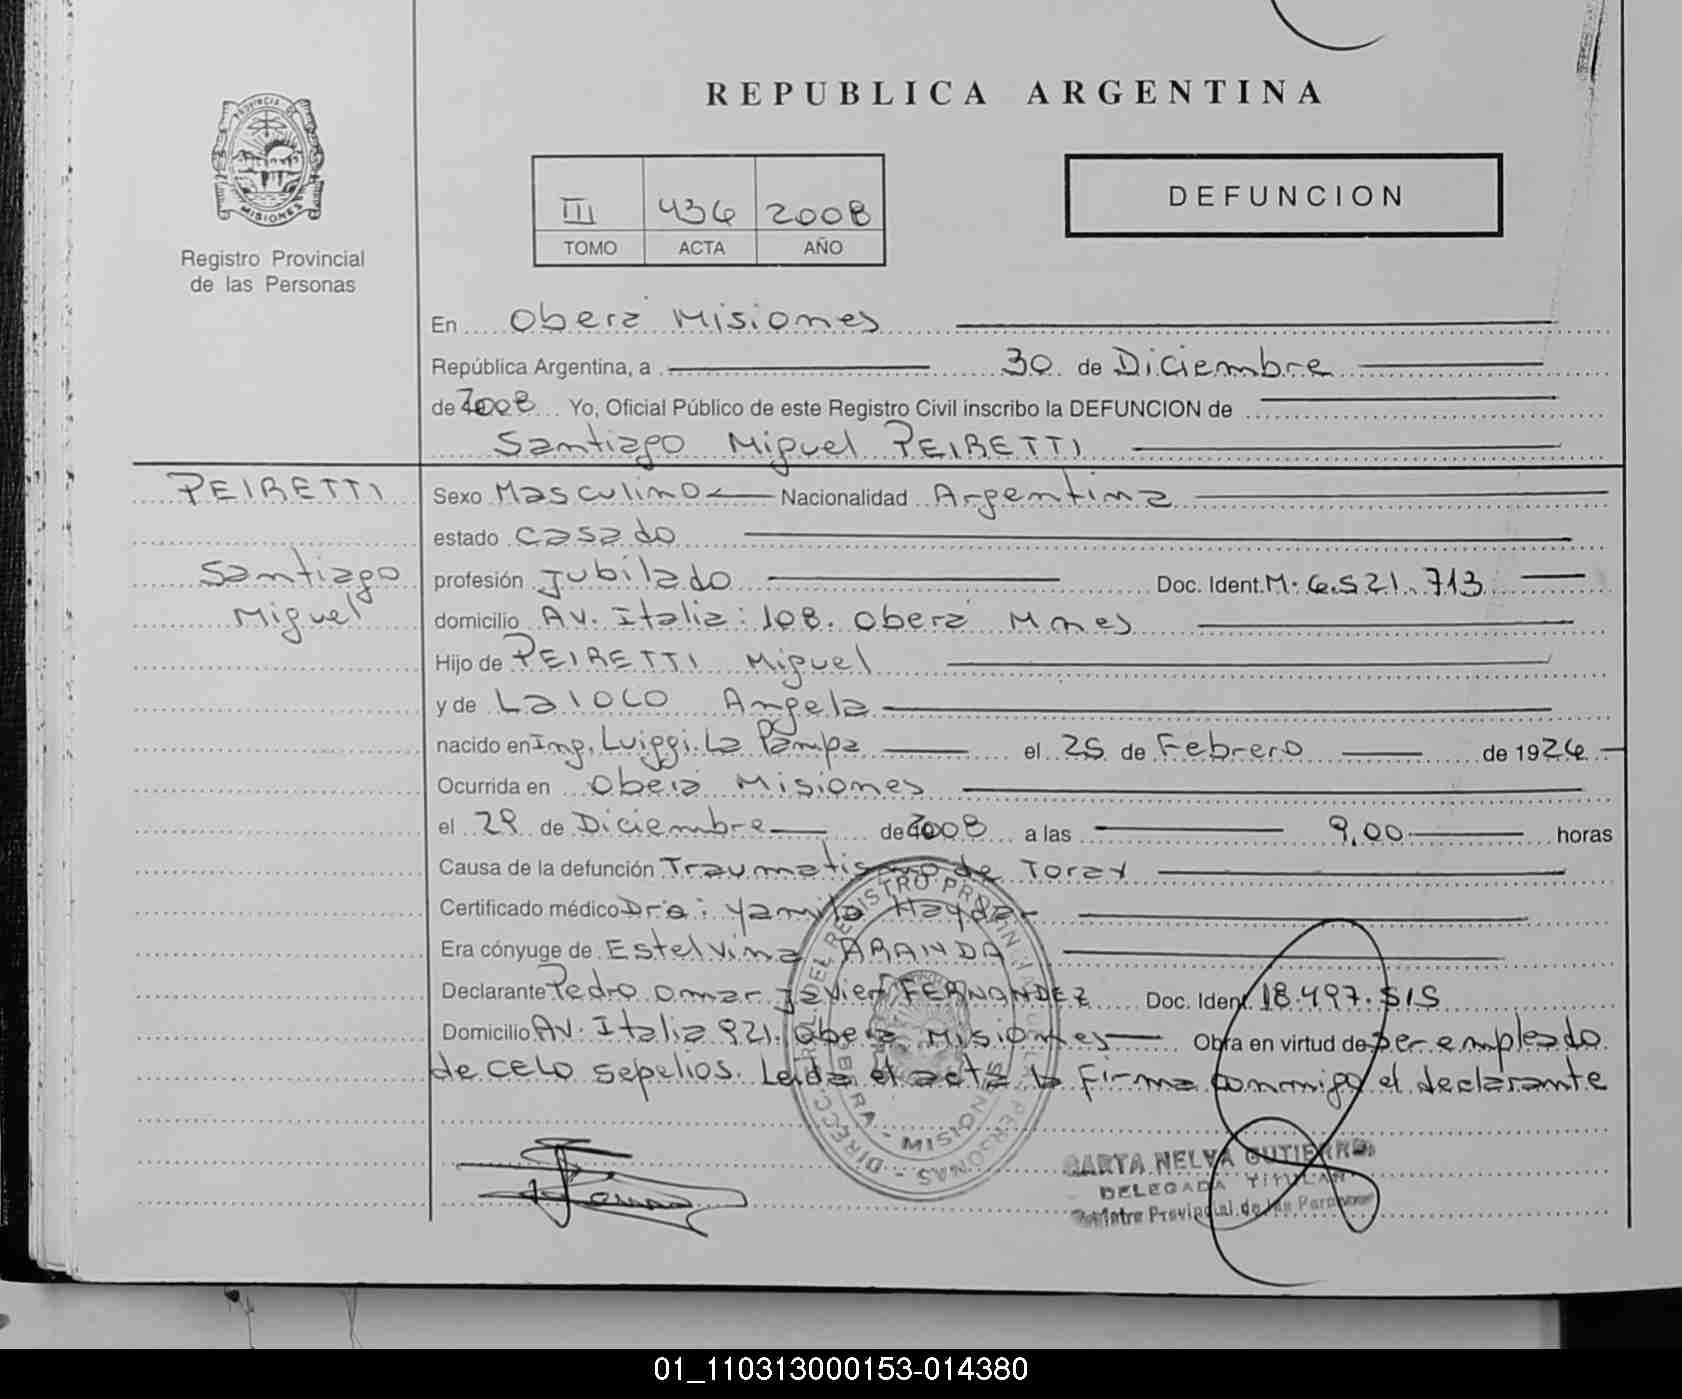 REPUBLICA ARGENTINA
PROVINCIA DE MISIONES
Registro Provincial
de las Personas
III 436 2008
TOMO ACTA AÑO
DEFUNCION
En Oberá Misiones
República Argentina, a 30 de Diciembre
de 2008 Yo, Oficial Público de este Registro Civil inscribo la DEFUNCION de
Santiago Miguel PEIRETTI
PEIRETTI
Santiago
Miguel
Sexo Masculino Nacionalidad Argentina
estado casado
profesión Jubilado Doc. Ident. M. 6.521.713
domicilio Av. Italia: 108. Oberá Mnes
Hijo de PEIRETTI Miguel
y de LaIOLO Angela
nacido en Ing. Luiggi. La Pampa el 25 de Febrero de 1926
Ocurrida en Oberá Misiones
el 29 de Diciembre de 2008 a las 9,00 horas
Causa de la defunción Traumatismo de Torax
Certificado médico Dra: Yamila Hayder
Era cónyuge de Estelvina ARANDA
Declarante Pedro Omar Javier FERNANDEZ Doc. Ident. 18.497.515
Domicilio Av. Italia 921. Oberá Misiones Obra en virtud de ser empleado
de CELO sepelios. Leida el acta la firma conmigo el declarante
MISIONES
NELVA GUTIERREZ
DELEGADA TITULAR
Registro Provincial de las Personas
01_110313000153-014380